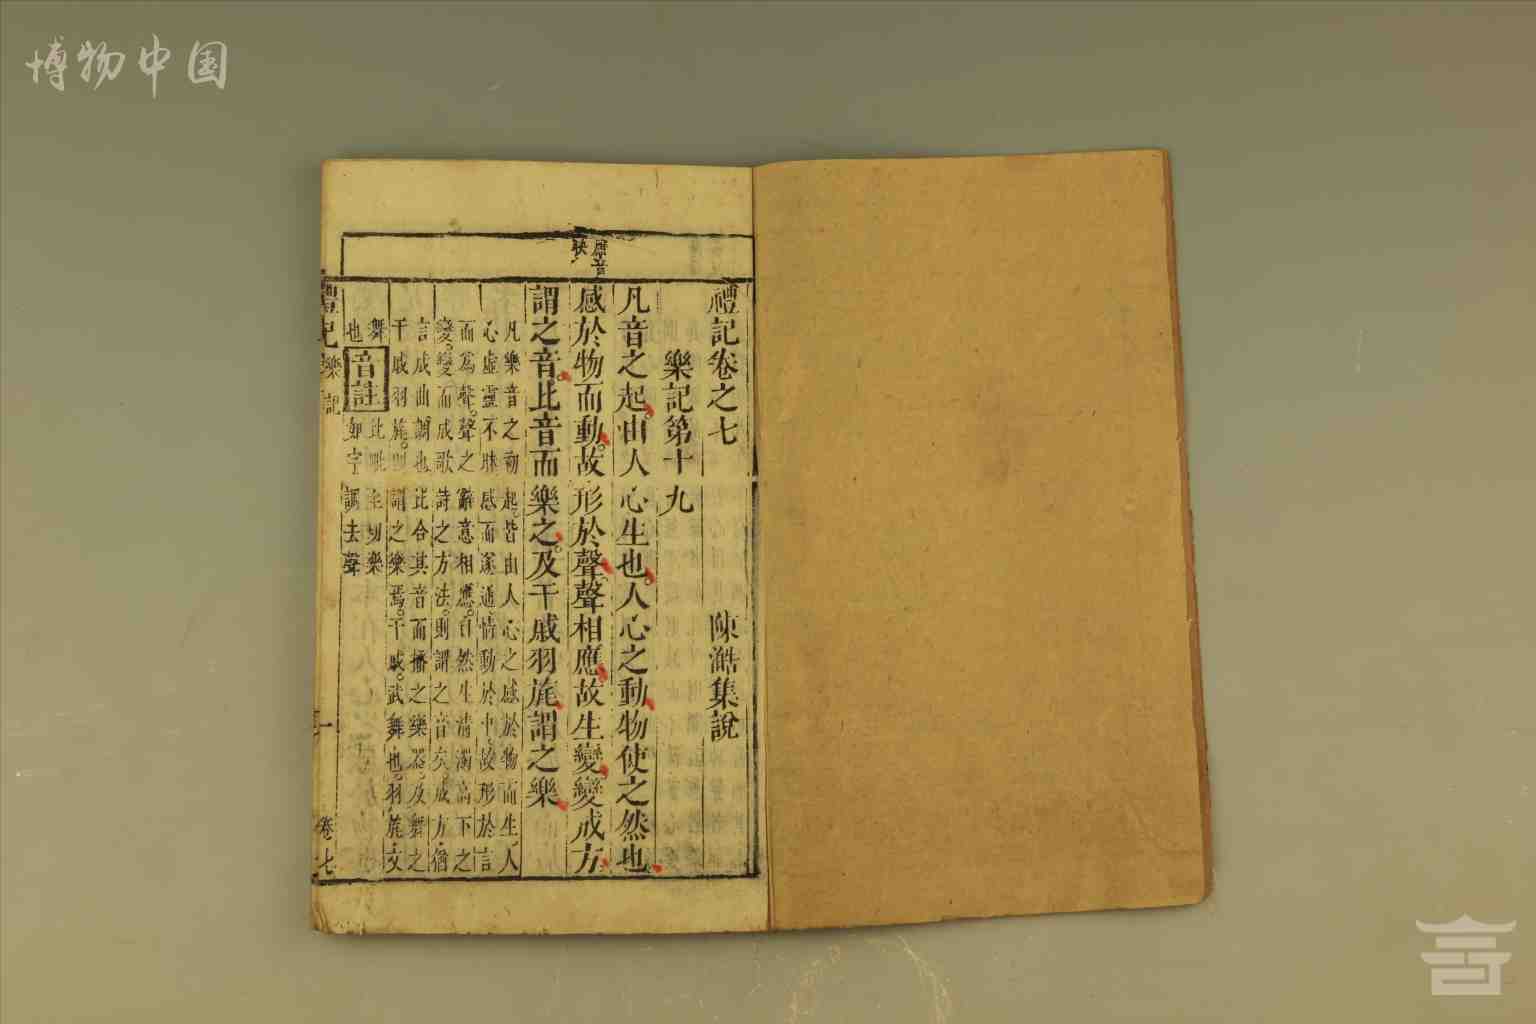 博物中国
禮記卷之七
陳澔集說
樂記第十九
凡音之起由人心生也人心之動物使之然也
感於物而動故形於聲聲相應故生變變成方
謂之音比音而樂之及干戚羽旄謂之樂
凡樂音之初起皆由人心之感於物而生人
心虛靈不昧感而遂通情動於中故形於言
而為聲聲之辭意相應自然生清濁高下之
變變而成歌詩之方法則謂之音矣成方猶
言成曲調也比合其音而播之樂器及舞之
干戚羽旄則謂之樂焉干戚武舞也羽旄文
舞
也
音註
比毗至切樂
如字調去聲
禮記
樂記
一
卷七